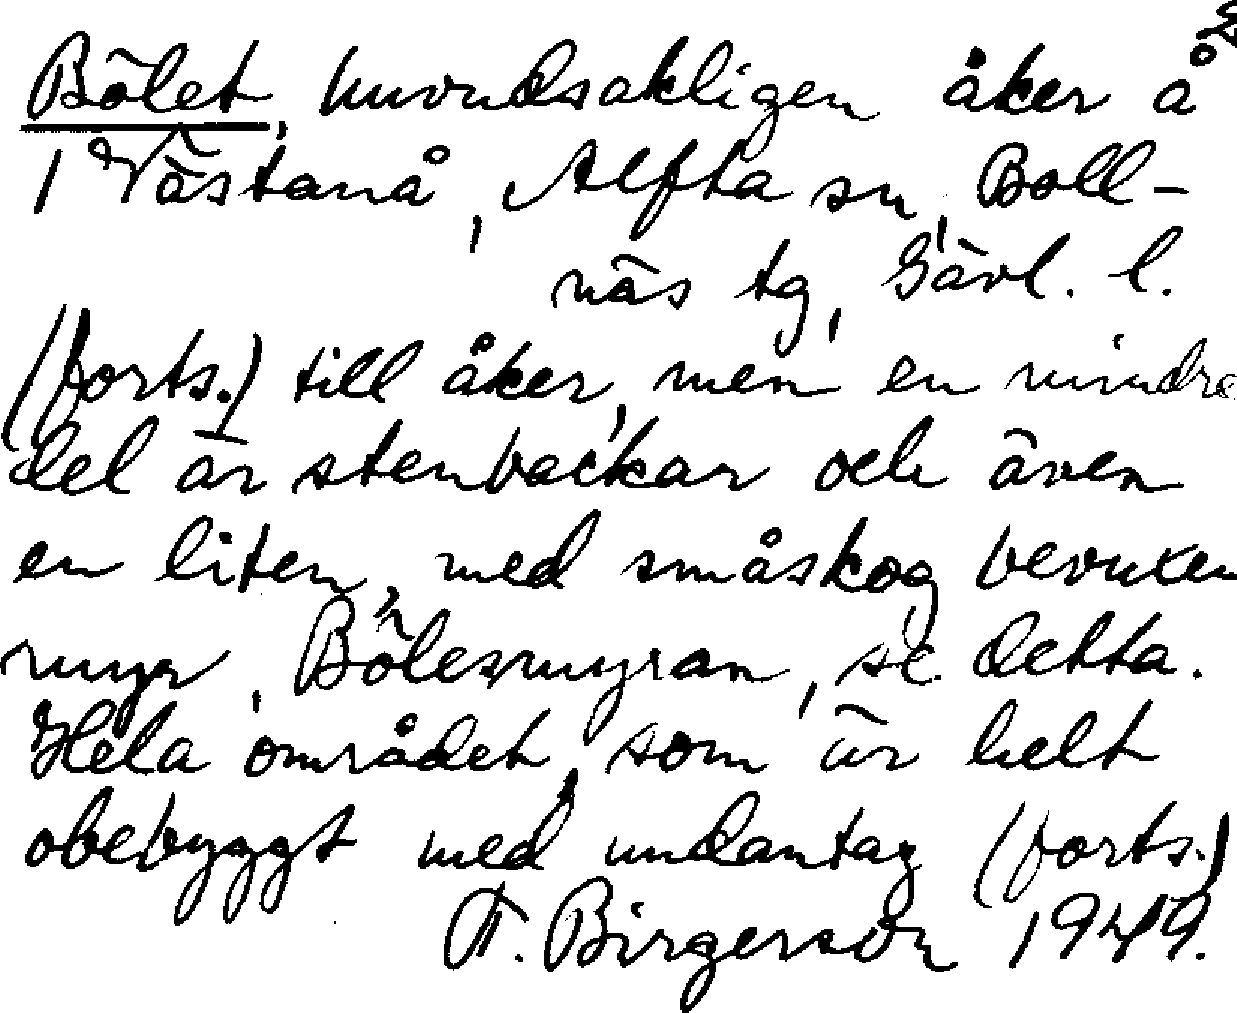 Bölet, huvudsakligen åker å
i Västanå, Alfta sn, Boll-
näs tg, Gävl. l.
(forts.) till åker, men en mindre
del är stenbackar och även
en liten, med småskog bevuxen
myr, Bölesmyran, se detta.
Hela området, som är helt
obebyggt med undantag (forts.)
F. Birgerson 1949.